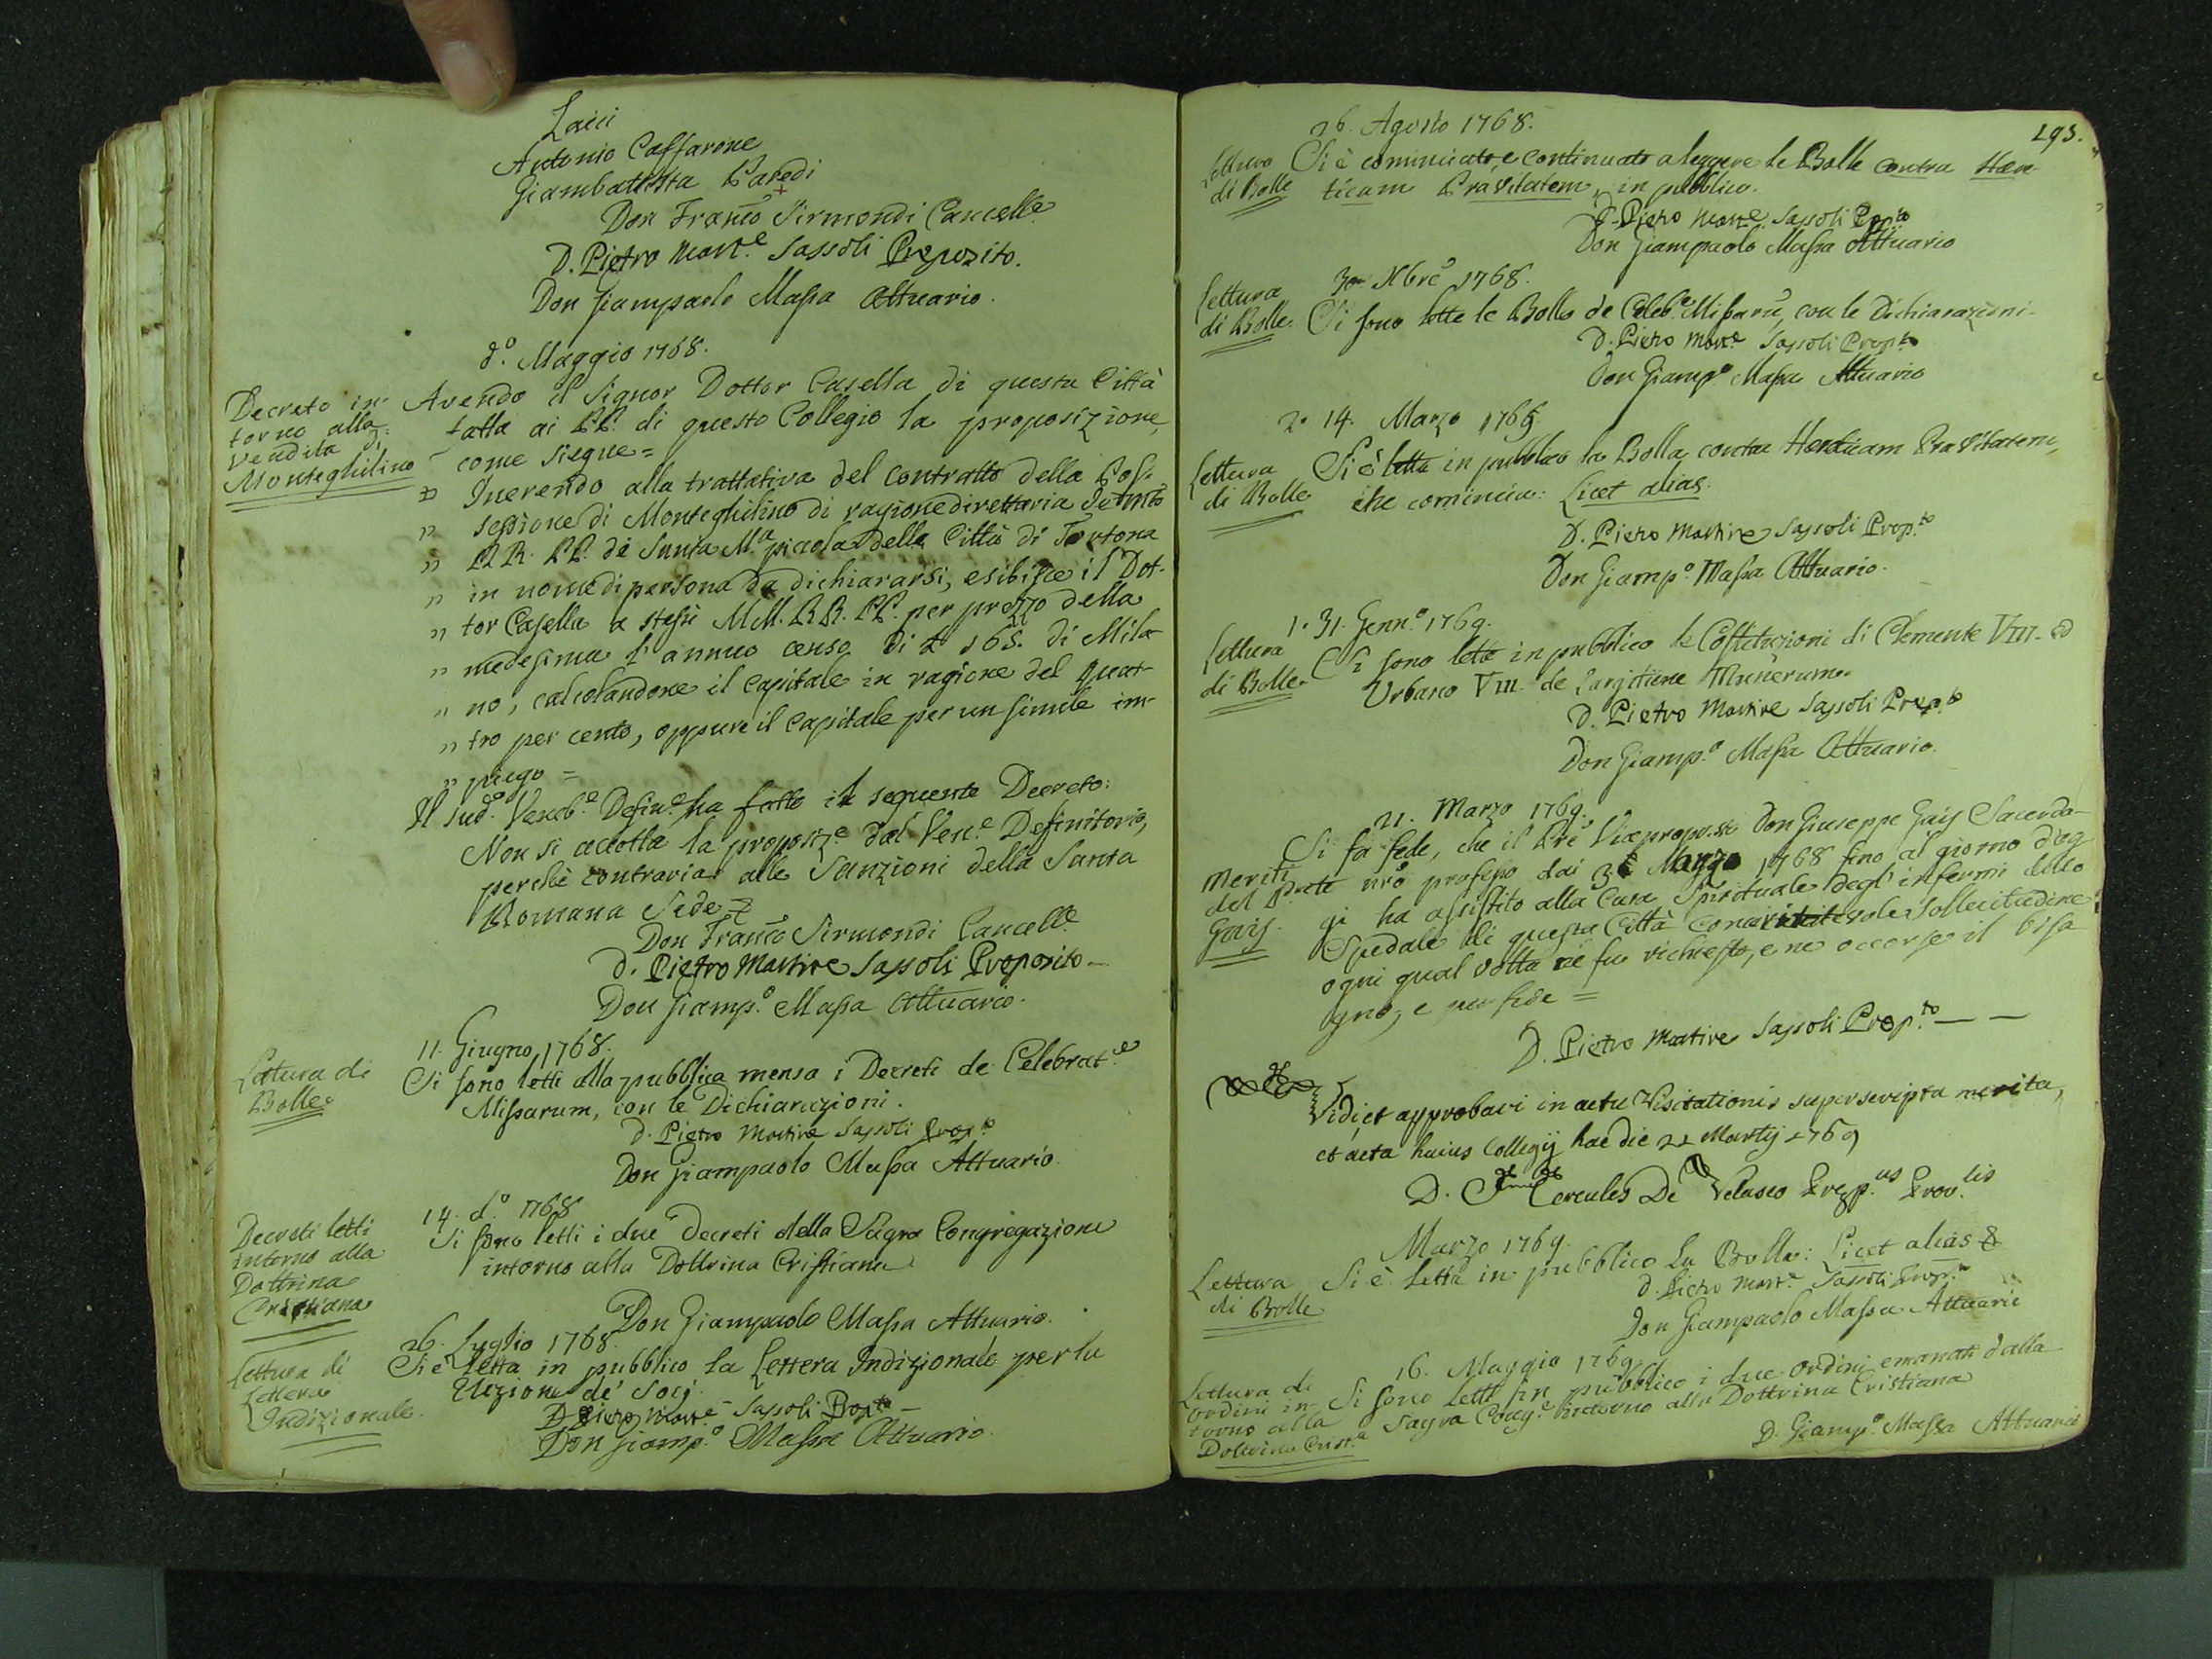 Laici
Antonio Caffarone
Giambattista Paredi
Don Franco Sirmondi Cancelle
D. Pietro Mart.e Sassoli Preposito.
Don Giampaolo Massa Attuario.
d.o Maggio 1768.
Decreto in-
torno alla
vendita di
Monteghilino
Avendo il Signor Dottor Casella di questa Città
fatta ai PP. di questo Collegio la proposizione,
come siegue =
" Inerendo alla trattativa del contratto della Pos-
" sessione di Monteghilino di ragione direttaria de'
" RR. PP. di Santa M.a piccola della Città di Tortona
" in nome di persona da dichiararsi, esibisce il Dot-
" tor Casella a stessi MM. RR. PP. per prezzo della
" medesima l'annuo censo di £ 165. di Mila-
" no, calcolandone il capitale in ragione del quat-
" tro per cento, oppure il capitale per un simile im-
" piego =
Il sud.o Veneb.e Defin.o ha fatto il seguente Decreto:
Non si accetta la proposiz.e dal Ven.e Definitorio,
perchè contraria alle Sanzioni della Santa
Romana Sede
Don Franco Sirmondi Cancelle
D. Pietro Martire Sassoli Preposito
Don Giamp.o Massa Attuario.
Lettura di
Bolle
11. Giugno, 1768.
Si sono letti alla pubblica mensa i Decreti de Celebrat.e
Missarum, con le Dichiarazioni.
D. Pietro Martire Sassoli Prep.to
Don Giampaolo Massa Attuario.
Decreti letti
intorno alla
Dottrina
Cristiana
14. d.o 1768
Si sono letti i due Decreti della Sagra Congregazione
intorno alla Dottrina Cristiana
Don Giampaolo Massa Attuario.
Lettura di
Lettera
Indizionale.
26. Luglio 1768.
Si è letta in pubblico la Lettera Indizionale per la
Elezione de' Socj.
D. Pietro Mart.e Sassoli Prep.to
Don Giamp.o Massa Attuario
193.
26. Agosto 1768.
Lettura
di Bolle
Si è cominciato, e continuato a leggere le Bolle contra Hære-
ticam Pravitatem, in pubblico.
D. Pietro Mart.e Sassoli Prep.to
Don Giampaolo Massa Attuario
30 Xbre 1768.
Lettura
di Bolle.
Si sono lette le Bolle de Celeb.e Missarū, con le Dichiarazioni.
D. Pietro Mart.e Sassoli Prep.to
Don Giamp.o Massa Attuario
2. 14. Marzo 1769.
Lettura
di Bolle
Si è letta in pubblico la Bolla contra Hæreticam Pravitatem,
che comincia: Licet alias.
D. Pietro Martire Sassoli Prep.to
Don Giamp.o Massa Attuario.
1. 31. Genn.o 1769.
Lettura
di Bolle.
Si sono lette in pubblico le Costituzioni di Clemente VIII. ed
Urbano VIII. de Largitione Munerum.
D. Pietro Martire Sassoli Prep.to
Don Giamp.o Massa Attuario.
21. Marzo 1769.
Meriti
del P.
Gavj.
Si fa fede, che il Pre Viceproposto Don Giuseppe Gavj Sacerdo-
te nrō professo dai Marzo 1768 fino al giorno d'og
gi ha assistito alla Cura Spirituale degl'infermi dello
Spedale di questa Città con sollecitudine
ogni qual volta nè fu richiesto, e ne occorse il biso
gno, e per fede =
D. Pietro Martire Sassoli Prep.to
Vidi et approbavi in actu Visitationis superscripta merita,
et acta huius Collegij hac die 22 Martij 1769
D. Hercules De Velasco Prep.us Prov.lis
Marzo 1769.
Lettura
di Bolle
Si è letta in pubblico la Bolla: Licet alias
D. Pietro Mart.e Sassoli Prep.to
Don Giampaolo Massa Attuario
16. Maggio 1769.
Lettura di
ordini in-
torno alla
Dottrina Crist.a
Si sono letti in pubblico i due ordini emanati dalla
Sagra Cong.e intorno alla Dottrina Cristiana
D. Giamp.o Massa Attuario